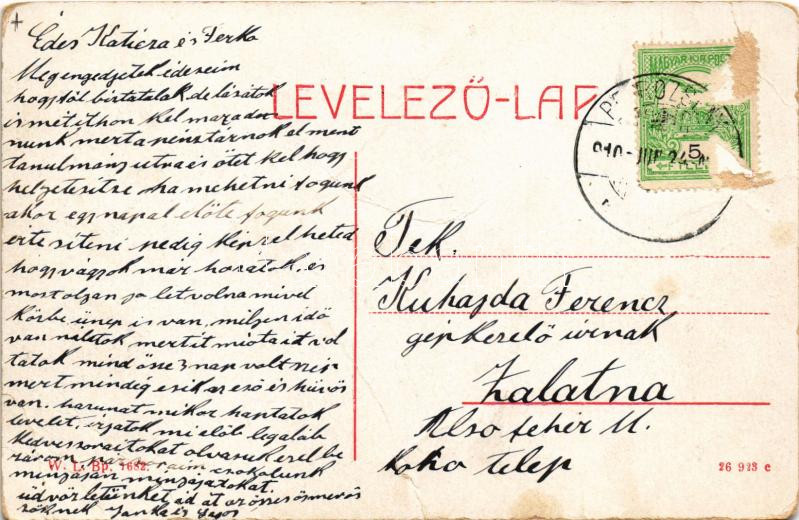 Édes Katicza és Ferkó
Megengedjetek édeseim
hogy föl biztatalak, de lássátok
ismét ithon kel maradnunk
nunk mert a pénztárnok el ment
tanulmány utra és őtet kel hogy
helyetesitse ha mehetni fogunk
akor egy napal előte fogunk
értesíteni pedig képzelheted
hogy vágyok már hozátok, és
most oljan jó let volna mivel
közbe ünep is van, miljen idő
van nálatok mert it mióta it vol
tatok mind öse 3 nap volt szép
mert mindég esik az eső és hüvös
van. harunat mikor kaptatok
levelet, irjatok mi elöb legaláb
kedves soraitokat olvasuk ezel be
zárom
csokolunk
minyájan minyájatokat.
üdvözletünket ád át az öses ösmerös
söknek Janka és
LEVELEZŐ-LAP
MAGYAR KIR. POS
5
910 JUN 24
Tek.
Kuhajda Ferencz
gépkezelő úrnak
Zalatna
Alsó fehér M.
telep
W. L. Bp. 1682.
26 923 c